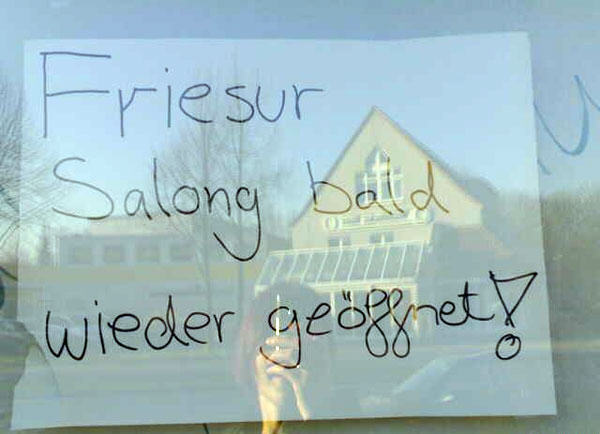 Friesur
Salong bald
wieder geöffnet!